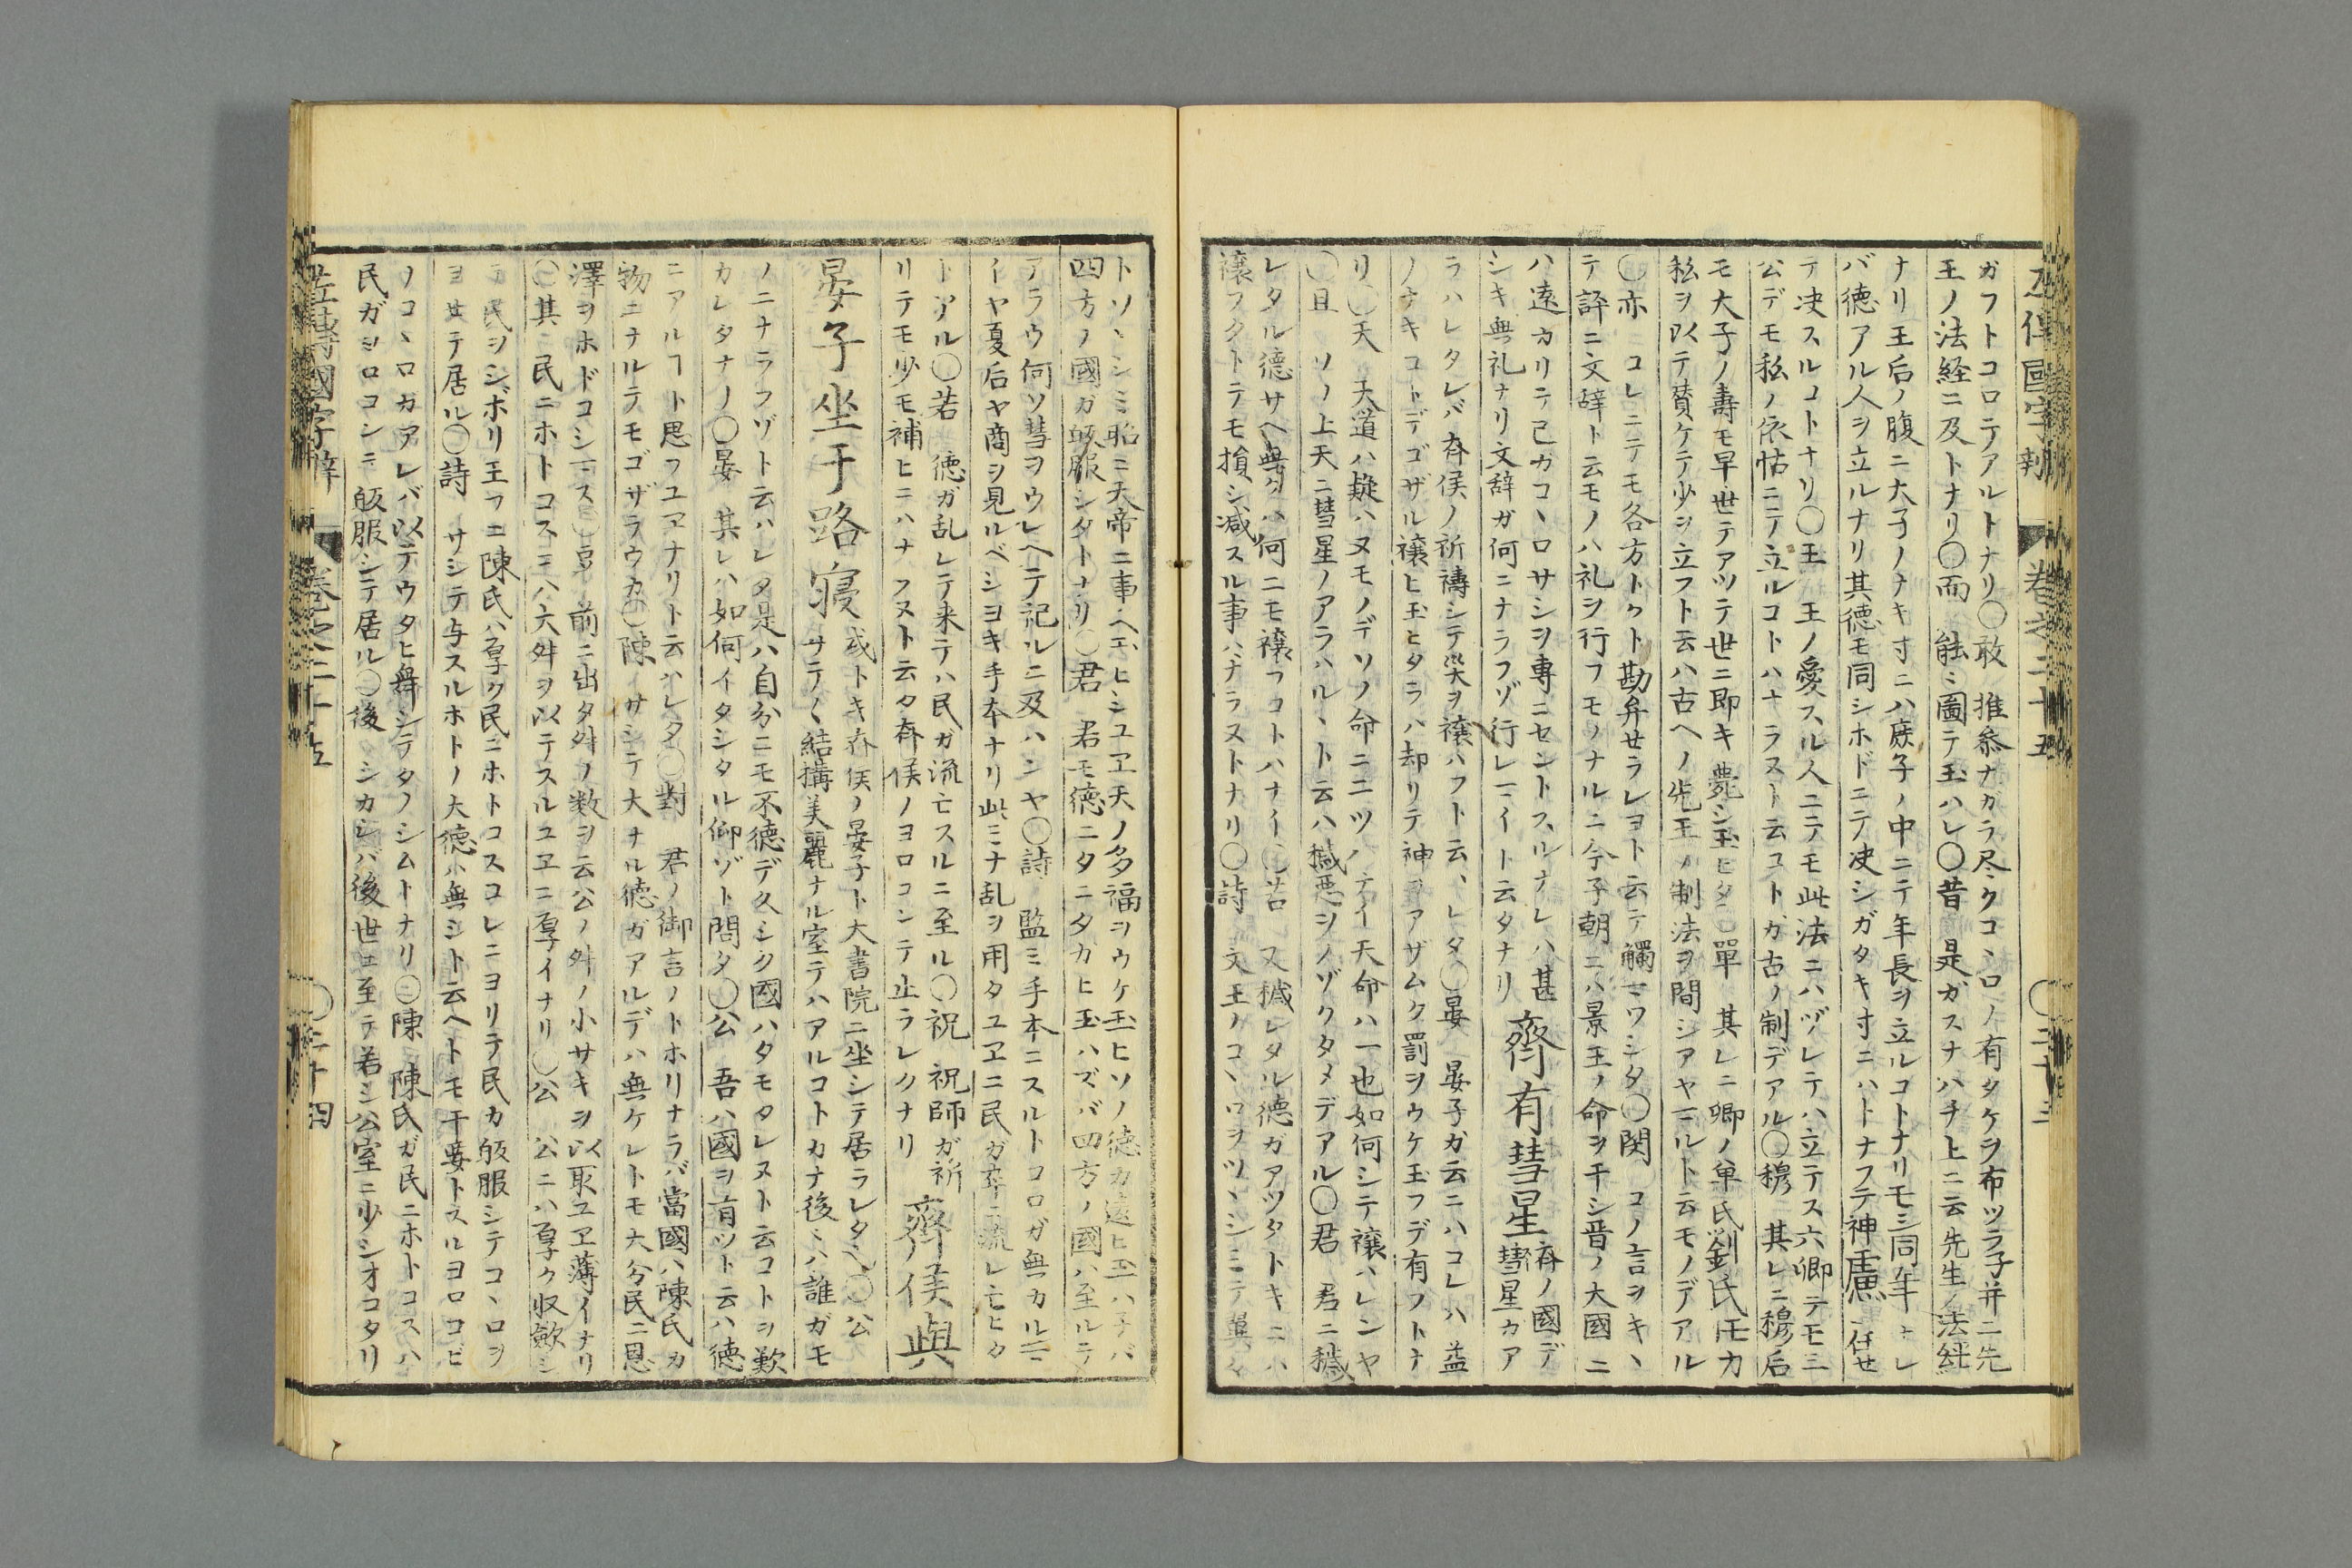 左傳國字辨 巻之二十五 ○二十三
ガフトコロテアルトナリ○敢 推参ナガラ尽クコヽロノ有タケヲ布ツラ子并ニ先
王ノ法経ニ及トナリ○而 能ミ圖テ玉ハレ○昔 是ガスナハチ上ニ云先生ノ法経
ナリ王后ノ腹ニ大子ノナキ寸ニハ庶子ノ中ニテ年長ヲ立ルコトナリモシ同年ナレ
バ徳アル人ヲ立ルナリ其徳モ同シホドニテ决シガタキ寸ニハトナフテ神慮ニ任せ
テ决スルコトナリ○王 王ノ愛スル人ニテモ此法ニハヅレテハ立テス六卿テモ三
公デモ私ノ依怙ニテ立ルコトハナラヌト云コトガ古ノ制デアル○穆 其レニ穆后
モ大子ノ壽モ早世テアツテ世ニ即キ薨シ玉ヒタ○單 其レニ卿ノ单氏劉氏モカ
私ヲ以テ賛ケテ少ヲ立フト云ハ古ヘノ先王ノ制法ヲ間シアヤマルト云モノデアル
○亦 コレニテモ各方トクト勘弁せラレヨト云テ觸マワシタ○閔 コノ言ヲキヽ
テ評ニ文辞ト云モノハ礼ヲ行フモノナルニ今子朝ニハ景王ノ命ヲ干シ晋ノ大國ニ
ハ遠カリテ己カコヽロサシヲ專ニセントスルナレハ甚 齊有彗星 斉ノ國デ
シキ無礼ナリ文辞ガ何ニナラフゾ行レマイト云タナリ 彗星カア
ラハレタレバ斉侯ノ祈禱シテ災ヲ禳ハフト云ヽレタ○晏 晏子ガ云ニハコレハ益
ノナキコトデゴザル禳ヒ玉ヒタラハ却リテ神ヲアザムク罰ヲウケ玉フデ有フトナ
リ○天 天道ハ疑ハヌモノデソノ命ニ二ツノナイ天命ハ一也如何シテ禳ハレンヤ
○且 ソノ上天ニ彗星ノアラハルヽト云ハ穢悪ヲノゾクタメデアル○君 君ニ穢
レタル徳サヘ無クハ何ニモ禳フコトハナイ○若 又穢レタル徳ガアツタトキニハ
禳フタトテモ損シ减スル事ハナラヌトナリ○詩 文王ノコヽロヲツヽシミテ翼々
トソヽシミ昭ニ天帝ニ事ヘ玉ヒシユヱ天ノ多福ヲウケ玉ヒソノ徳カ違ヒ玉ハナバ
四方ノ國ガ皈服シタトナリ○君 君モ徳ニタニタカヒ玉ハズバ四方ノ國ハ至ルテ
アラウ何ソ彗ヲウレヘテ記ルニ及ハンヤ○詩 監ミ手本ニスルトコロガ無カルマ
イヤ夏后ヤ商ヲ見ルベシヨキ手本ナリ此ミナ乱ヲ用タユヱニ民ガ卒ニ流レ亡ヒタ
トアル○若 徳ガ乱レテ来テハ民ガ流亡スルニ至ル○祝 祝師ガ祈
リテモ少モ補ヒニハナフヌト云タ斉侯ノヨロコンテ止ラレタナリ 齊侯與
晏子坐于路寝 或トキ斉侯ノ晏子ト大書院ニ坐シテ居ラレタ○公
サテ〳〵結搆美麗ナル室テハアルコトカナ後ヽハ誰ガモ
ノニナラフゾト云ハレタ是ハ自分ニモ不徳デ久シク國ハタモタレヌト云コトヲ歎
カレタナノ○晏 其レハ如何イタシタル仰ゾト問タ○公 吾ハ國ヲ有ツト云ハ徳
ニアルヿト思フユヱナリト云ハレタ○對 君ノ御言ノトホリナラバ當國ハ陳氏カ
物ニナルテモゴザラウカ○陳 サシテ大ナル徳ガアルデハ無ケレトモ大分民ニ恩
澤ヲホドコシマス○豆 前ニ出タ舛ノ数ヲ云公ノ舛ノ小サキヲ以取ユヱ薄イナリ
○其 民ニホトコスニハ大舛ヲ以テスルユヱニ厚イナリ○公 公ニハ厚ク収斂シ
テ民ヲシボリ玉フニ陳氏ハ厚ク民ニホトコスコレニヨリテ民カ皈服シテコヽロヲ
ヨせテ居ル○詩 サシテ与スルホトノ大徳ハ無シト云ヘトモ干要トスルヨロコビ
ノコヽロガアレバ以テウタヒ舞シテタノシムトナリ○陳 陳氏ガ民ニホトコスハ
民ガヨロコンニ皈服シテ居ル○後 シカシバ後世ニ至テ若シ公室ニ少シオコタリ
左傳國字辨 巻之二十五 ○二十四